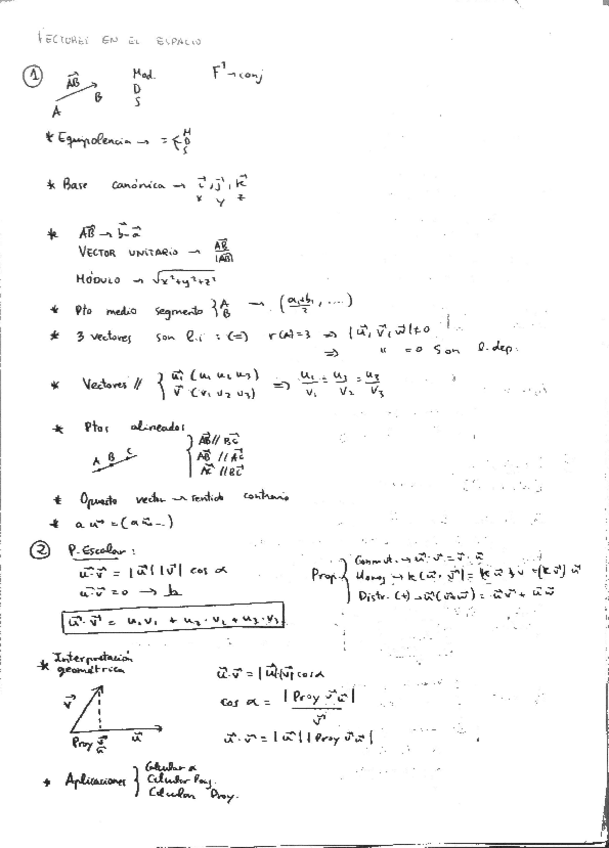 VECTORES EN EL ESPACIO
① AB→ Mod. D S
A B
* Equipolencia → = { M D S
* Base canónica → i→, j→, k→
x y z
* AB→ → b→-a→
VECTOR UNITARIO → AB→/|AB→|
MÓDULO → √x²+y²+z²
* Pto medio segmento } A B → (a₁+b₁/2, ....)
* 3 vectores son l.i : (=) r(A)=3 => |u→, v→, w→|≠0
=> " =0 Son l.dep.
* Vectores // { u→ (u₁ u₂ u₃) v→ (v₁ v₂ v₃) => u₁/v₁ = u₂/v₂ = u₃/v₃
* Ptos alineados
A B C { AB→ // BC→
AB→ // AC→
AC→ // BC→
* Opuesto vector → sentido contrario
② P. Escalar :
u→·v→ = |u→| |v→| cos α
u→·v→ = 0 →
u→·v→ = u₁v₁ + u₂·v₂ + u₃·v₃
Prop. { Conmut. → u→·v→ = v→·u→
Distr. (+) → u→(v→+w→) = u→v→ + u→w→
* Interpretación geométrica
u→·v→ = |u→||v→| cos α
cos α = |Proy v→ u→| / v→
u→·v→ = |u→| |Proy v→ u→|
v→
Proy v→/u→ u→
* Aplicaciones } Calcular α
Calcular
Calcular Proy.